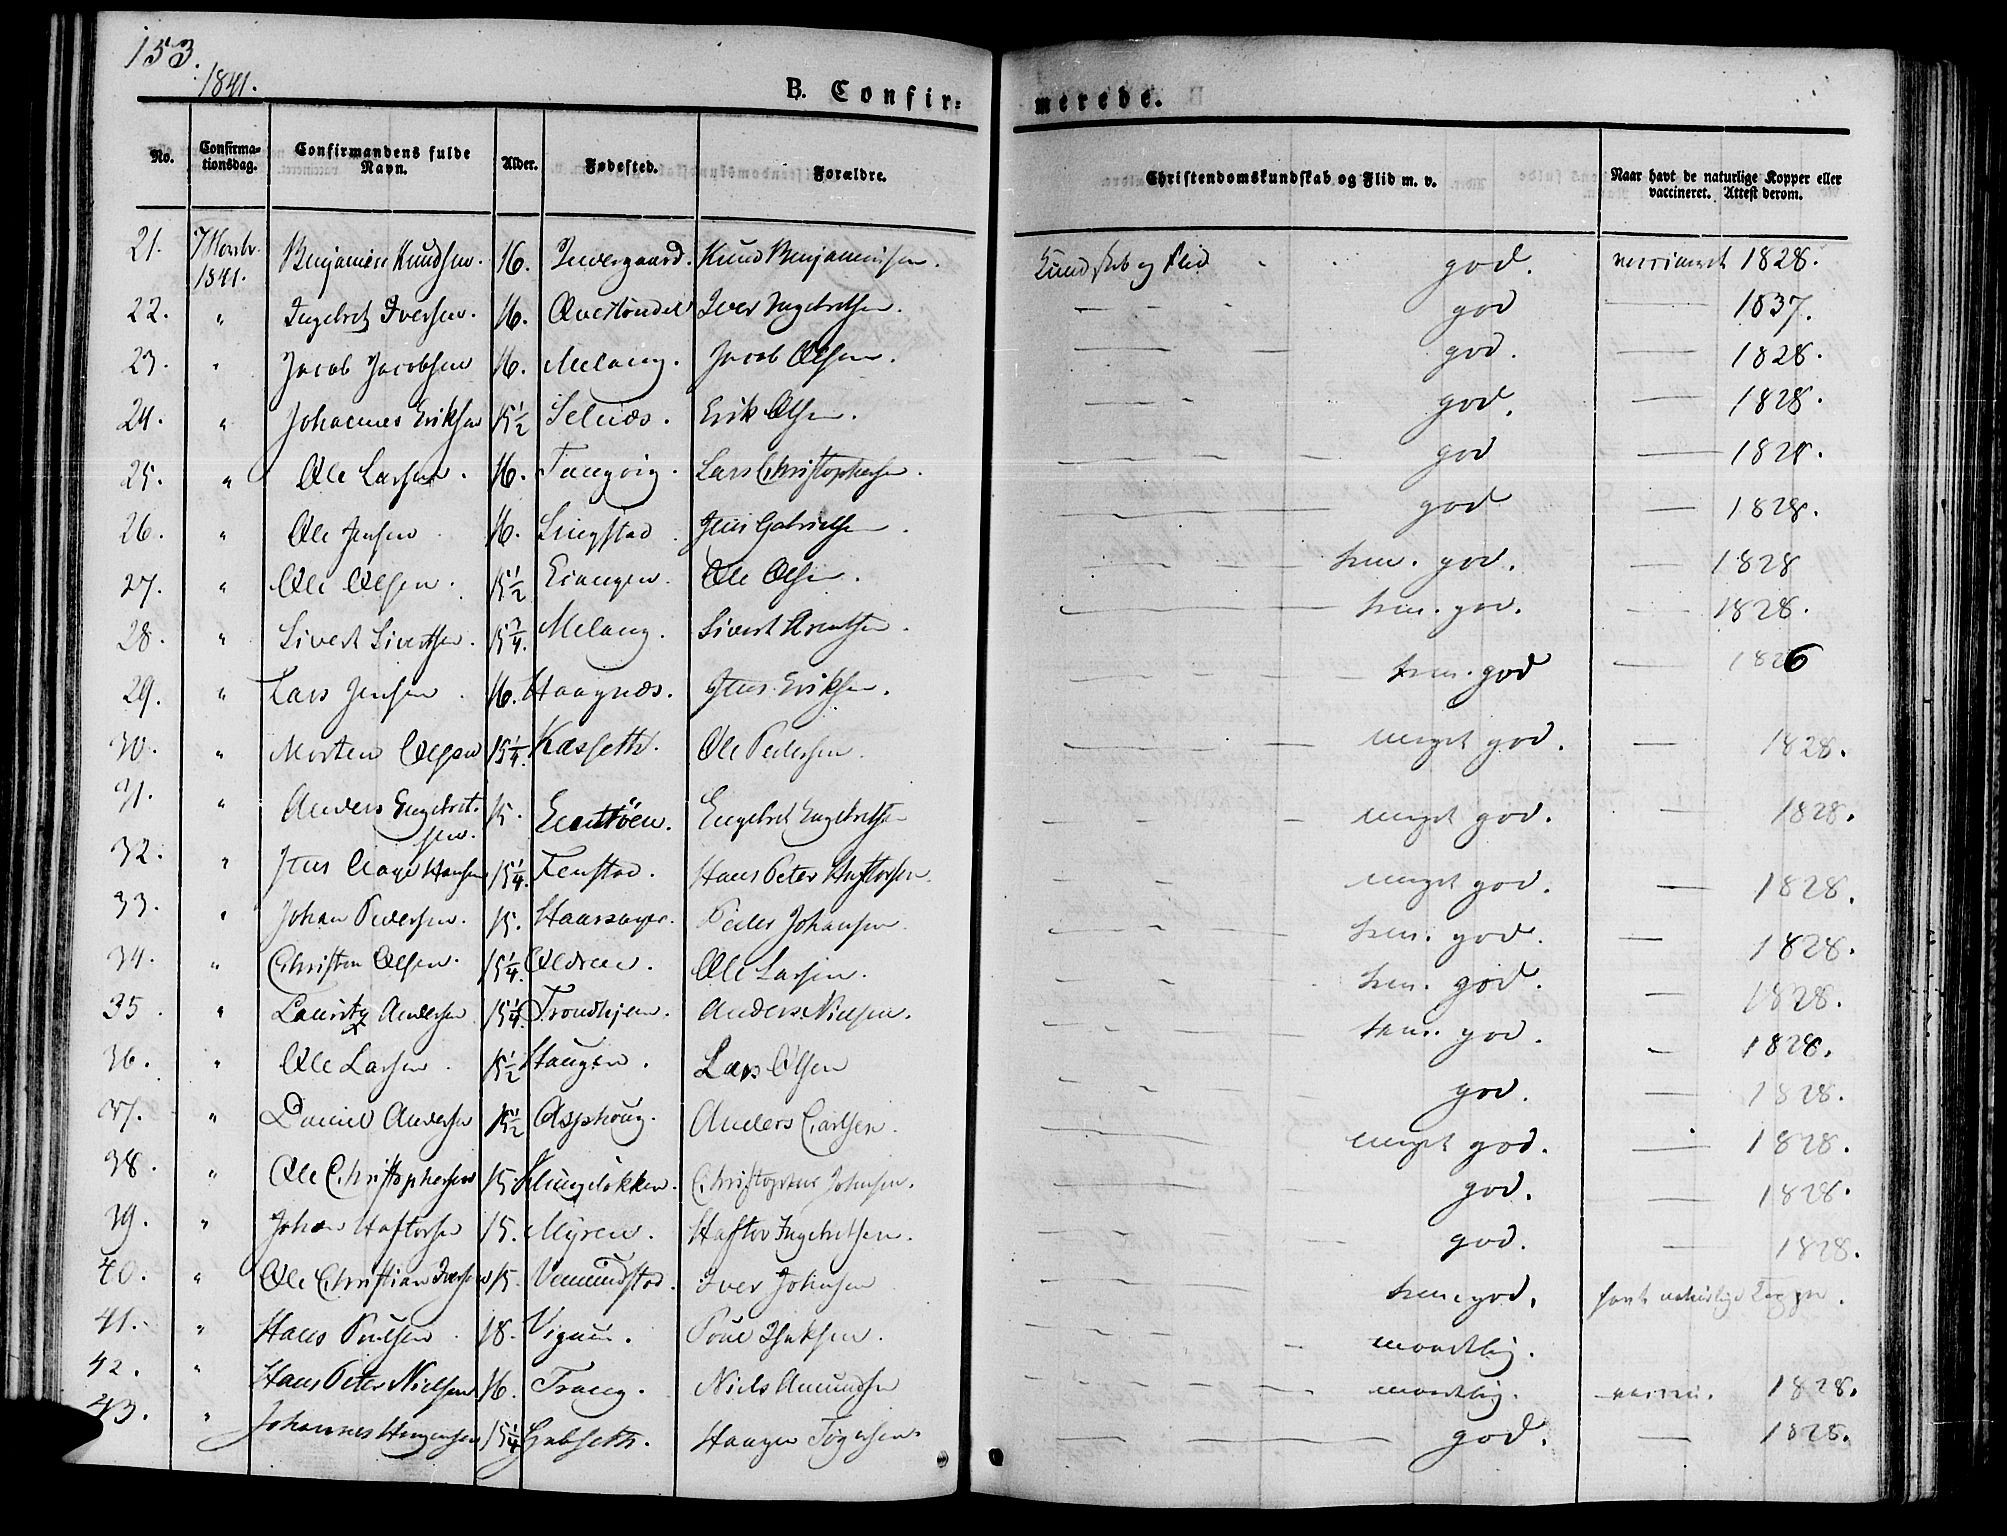 153.
1841.
B. Confir-
merede.
No.
Confirma-
tionsdag.
Confirmandens fulde
Navn.
Alder.
Fødested.
Forældre.
Christendomskundskab og Flid m. v.
Naar havt de naturlige Kopper eller
vaccineret. Attest derom.
21. 7 Novbr. 1841. Benjamin Knudsen. 16. Knud Benjaminsen. Kundskab og Flid god. vaccineret 1828.
22. " Ingebret Iversen. 16. Iver Ingebretsen. god 1837.
23. " Jacob Jacobsen 16. Melang. Jacob Olsen. god. 1828.
24. " Johannes Eriksen 15½ Selnæs. Erik Olsen. god. 1828.
25. " Ole Larsen. 16. Tungvig. Lars Christophersen. god 1828.
26. " Ole Jensen 16. Lingstad. Jens Gabrielsen. god 1828.
27. " Ole Olsen. 15½ Ole Olsen. god. 1828
28. " Sivert Sivertsen. 15¾. Melang. Sivert Arentsen. god. 1828.
29. " Lars Jensen 16. Haagnæs. Jens Eriksen. god 1826
30. " Morten Olsen 15¼. Kasseth. Ole Pedersen meget god. 1828.
31. " Anders Engebret-
sen. 15. Engebret Engebretsen meget god. 1828.
32. " Jens Aage Hansen 15¼. Fenstad. Hans Peter Haftorsen. meget god. 1828.
33. " Johan Pedersen. 15. Peder Johansen god. 1828.
34. " Christen Olsen. 15¼. Ole Larsen. god. 1828.
35. " Lauritz Andersen 15¼. Trondhjem. Anders Nielsen. god. 1828.
36. " Ole Larsen 15½ Haugen. Lars Olsen god. 1828.
37. " Daniel Andersen 15½ Asphoug. Anders Carlsen. meget god. 1828.
38. " Ole Christophersen 15. Klungeløkken. Christopher Johnsen. god. 1828.
39. " Johan Haftorsen 15. Myren. Haftor Ingebretsen. god. 1828.
40. " Ole Christian Iversen 15. Vemundstad. Iver Johnsen god. havt naturlige Kopper.
41. " Hans Poulsen 18. Vignun. Poul Isaksen. maadelig.
42. " Hans Peter Nielsen 16. Trang. Niels Amundsen maadelig. vaccin. 1828.
43. " Johannes Haagensen 15¼ Gabseth. Haagen god. 1828.